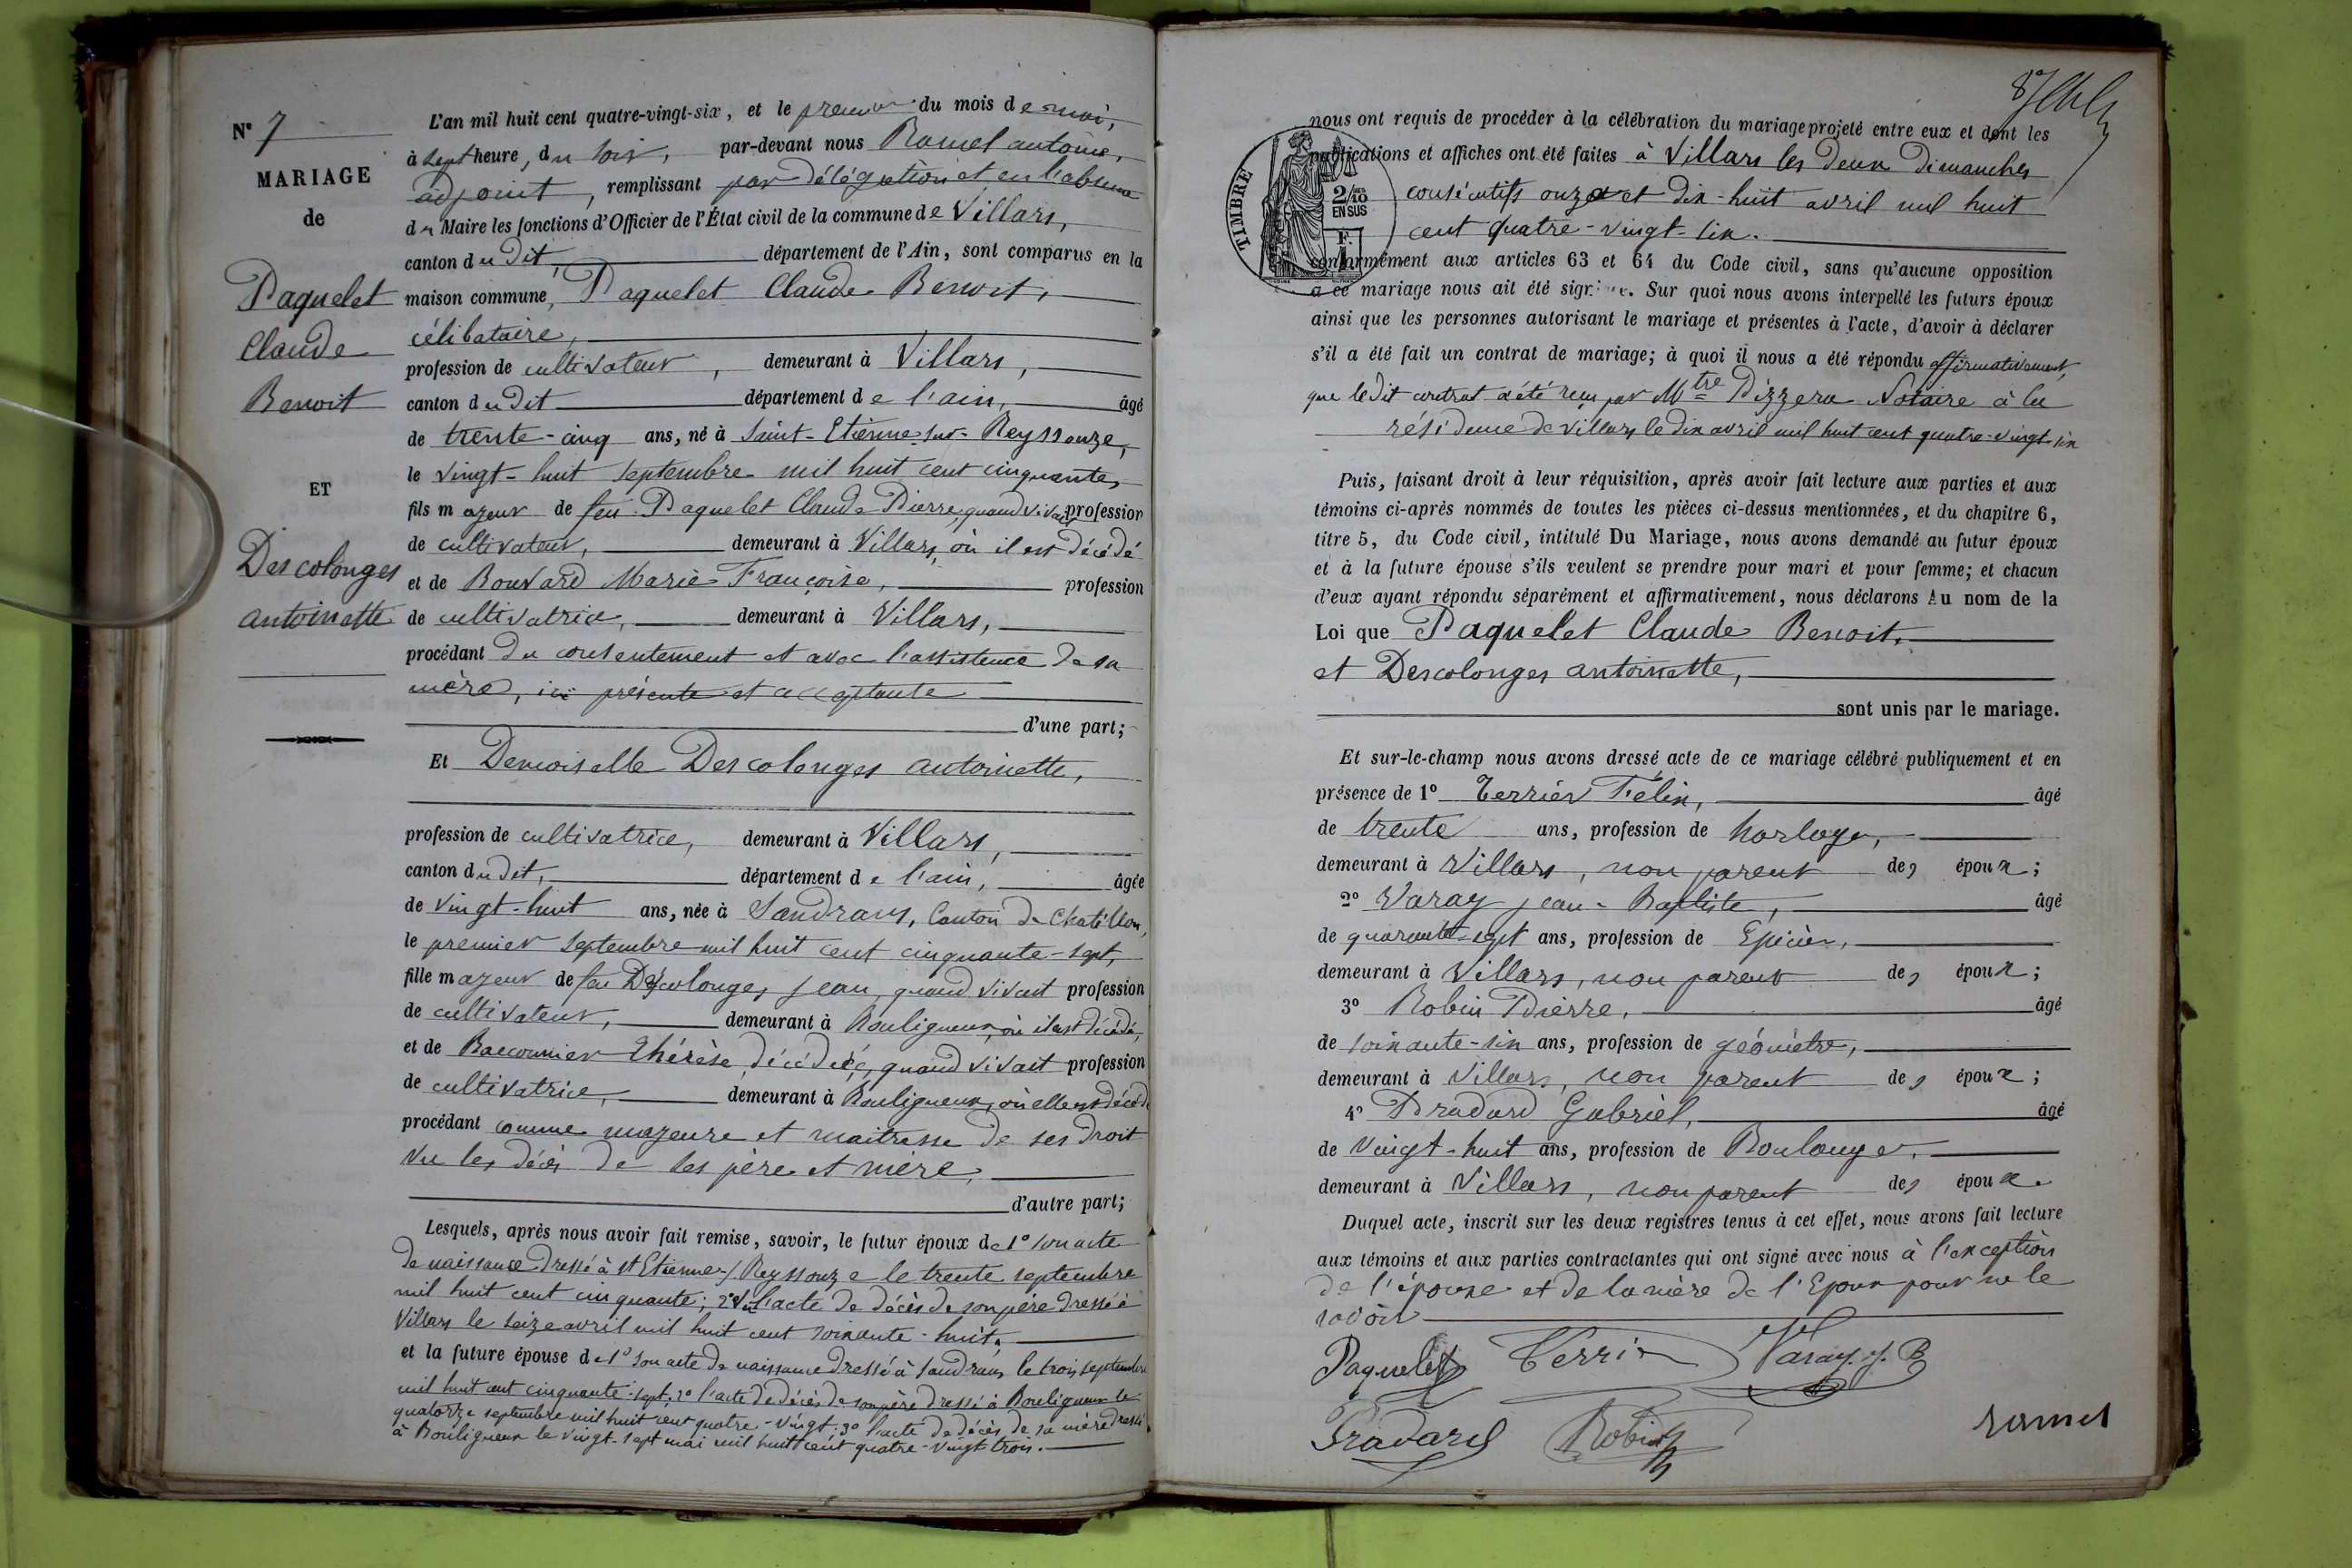 N° 7
MARIAGE
de
Paquelet
Claude
Benoit
ET
Descolonges
antoinette
L'an mil huit cent quatre-vingt-six, et le premier du mois de mai,
à sept heure, du soir, par-devant nous Ramel antoine,
adjoint, remplissant par délégation et en l'absence
du Maire les fonctions d'Officier de l'État civil de la commune de Villars,
canton dudit département de l'Ain, sont comparus en la
maison commune, Paquelet Claude Benoit,
célibataire,
profession de cultivateur, demeurant à Villars,
canton dudit département de l'ain, âgé
de trente-cinq ans, né à Saint-Etienne-sur-Reyssouze,
le vingt-huit septembre mil huit cent cinquante,
fils majeur de feu Paquelet Claude Pierre, quand vivait profession
de cultivateur, demeurant à Villars, où il est décédé
et de Bouvard Marie Françoise, profession
de cultivatrice, demeurant à Villars,
procédant du consentement et avec l'assistence de sa
mère, ici présente et acceptante
d'une part;
Et Demoiselle Descolonges antoinette,
profession de cultivatrice, demeurant à Villars,
canton dudit, département de l'ain, âgée
de vingt-huit ans, née à Sandrans, Canton de Chatillon,
le premier septembre mil huit cent cinquante-sept,
fille majeur de feu Descolonges Jean, quand vivait profession
de cultivateur, demeurant à Bouligneux, où il est décédé,
et de Baccounier Thérèse, décédée, quand vivait profession
de cultivatrice, demeurant à Bouligneux, où elle est décédé
procédant comme majeure et maitresse de ses droit
vu les décès de ses père et mère,
d'autre part;
Lesquels, après nous avoir fait remise, savoir, le futur époux de 1° son acte
de naissance dressé à st Etienne s/ Reyssouze le trente septembre
mil huit cent cinquante; 2° l'acte de décès de son père dressé à
Villars le seize avril mil huit cent soixante-huit.
et la future épouse de 1° son acte de naissance dressé à Sandrans le trois septembre
mil huit cent cinquante-sept; 2° l'acte de décès de son père dressé à Bouligneux le
quatorze septembre mil huit cent quatre-vingt; 3° l'acte de décès de sa mère dressé
à Bouligneux le vingt-sept mai mil huit cent quatre-vingt trois.
nous ont requis de procéder à la célébration du mariage projeté entre eux et dont les
publications et affiches ont été faites à Villars les deux dimanches
consécutifs onze et dix-huit avril mil huit
cent quatre-vingt-six.
TIMBRE
2/10 EN SUS
F. 1
conformément aux articles 63 et 64 du Code civil, sans qu'aucune opposition
à ce mariage nous ait été signifiée. Sur quoi nous avons interpellé les futurs époux
ainsi que les personnes autorisant le mariage et présentes à l'acte, d'avoir à déclarer
s'il a été fait un contrat de mariage; à quoi il nous a été répondu affirmativement,
que ledit contrat a été reçu par Mtre Pizzera Notaire à la
résidence de Villars le dix avril mil huit cent quatre-vingt-six
Puis, faisant droit à leur réquisition, après avoir fait lecture aux parties et aux
témoins ci-après nommés de toutes les pièces ci-dessus mentionnées, et du chapitre 6,
titre 5, du Code civil, intitulé Du Mariage, nous avons demandé au futur époux
et à la future épouse s'ils veulent se prendre pour mari et pour femme; et chacun
d'eux ayant répondu séparément et affirmativement, nous déclarons Au nom de la
Loi que Paquelet Claude Benoit,
et Descolonges antoinette,
sont unis par le mariage.
Et sur-le-champ nous avons dressé acte de ce mariage célébré publiquement et en
présence de 1° Terrier Félix, âgé
de trente ans, profession de horloger,
demeurant à Villars, non parent des époux;
2° Varay Jean-Baptiste, âgé
de quarante-sept ans, profession de Epicier,
demeurant à Villars, non parent des époux;
3° Robin Pierre, âgé
de soixante-six ans, profession de géomètre,
demeurant à Villars, non parent des époux;
4° Pradard Gabriel, âgé
de vingt-huit ans, profession de Boulanger,
demeurant à Villars, non parent des époux.
Duquel acte, inscrit sur les deux registres tenus à cet effet, nous avons fait lecture
aux témoins et aux parties contractantes qui ont signé avec nous à l'exception
de l'épouse et de la mère de l'Epoux pour ne le
savoir
Paquelet Terrier Varay J. B
Pradard Robin ramel